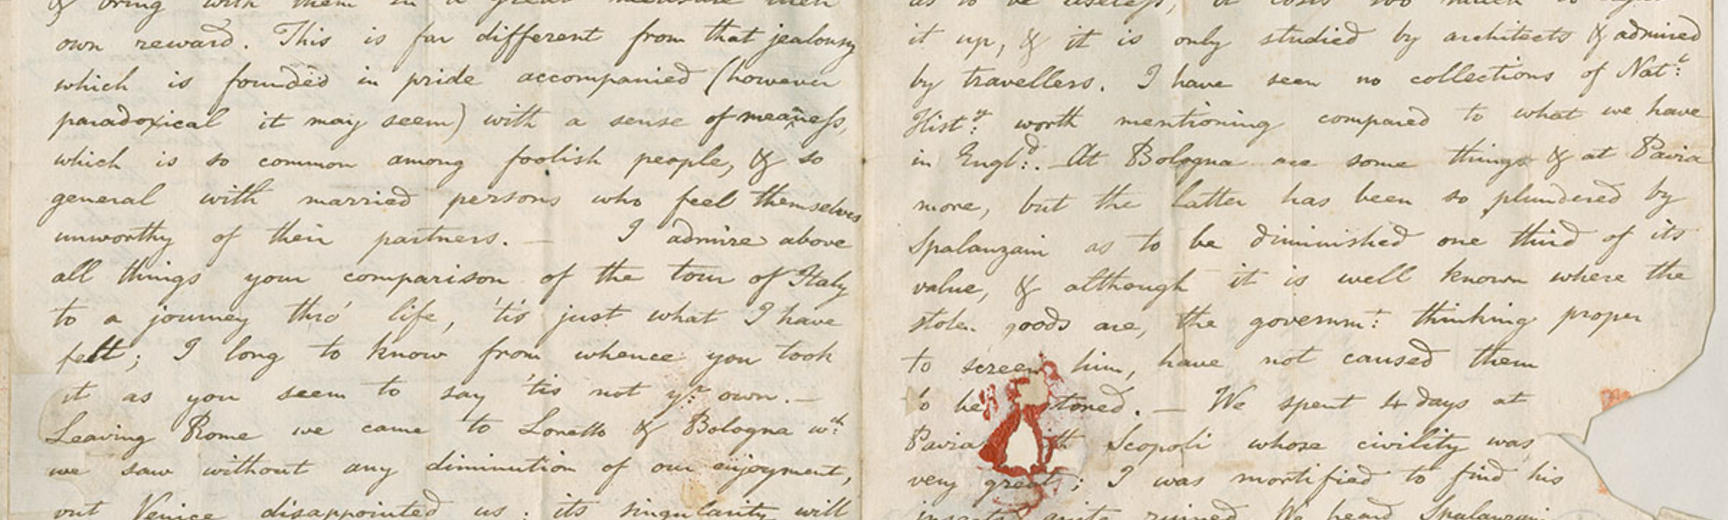 & bring with them in a great measure their
own reward. This is far different from that jealousy
which is founded in pride accompanied (however
paradoxical it may seem) with a sense of meaness,
which is so common among foolish people, & so
general with married persons who feel themselves
unworthy of their partners. — I admire above
all things your comparison of the tour of Italy
to a journey thro' life, 'tis just what I have
felt; I long to know from whence you took
it as you seem to say 'tis not yr. own. —
Leaving Rome we came to Loretto & Bologna wch.
we saw without any diminution of our enjoyment,
but Venice disappointed us: its singularity will
as to be useless, it costs too much to
it up, & it is only studied by architects & admired
by travellers. I have seen no collections of Natl.
Histy. worth mentioning compared to what we have
in Engld. At Bologna are some things & at Pavia
more, but the latter has been so plundered by
Spalanzani as to be diminished one third of its
value, & although it is well known where the
stolen goods are, the governmt. thinking proper
to screen him, have not caused them
to be stored. — We spent 4 days at
Pavia th Scopoli whose civility was
very great; I was mortified to find his
insects quite ruined. We heard Spalanzani